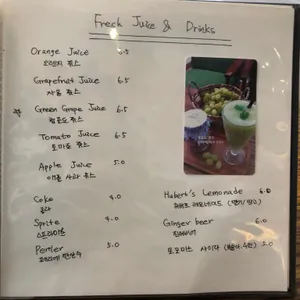 Fresh Juice & Drinks
Orange Juice 6.5
오렌지 쥬스
Grapefruit Juice 6.5
자몽 쥬스
Green Grape Juice 6.5
청포도 쥬스
Tomato Juice 6.5
토마토 쥬스
Apple Juice 5.0
사과 쥬스
Coke 4.0
콜라
Sprite 4.0
스프라이트
Perrier 5.0
탄산수
Hubert's Lemonade 6.0
레모네이드
Ginger beer 6.0
진저비어
사이다 5.0